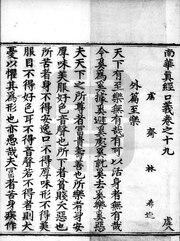 南華真經口義卷之十九 虞
鬳齋 林 希逸
外篇至樂
天下有至樂無有哉有可以活身者無有哉
今奚為奚據奚避奚處奚就奚去奚樂奚惡
夫天下之所尊者富貴壽善也所樂者身安
厚味美服好色音聲也所下者貧賤夭惡也
所苦者身不得安逸口不得厚味形不得美
服目不得好色耳不得音聲若不得者則大
憂以懼其為形也亦愚哉夫富者苦身疾作